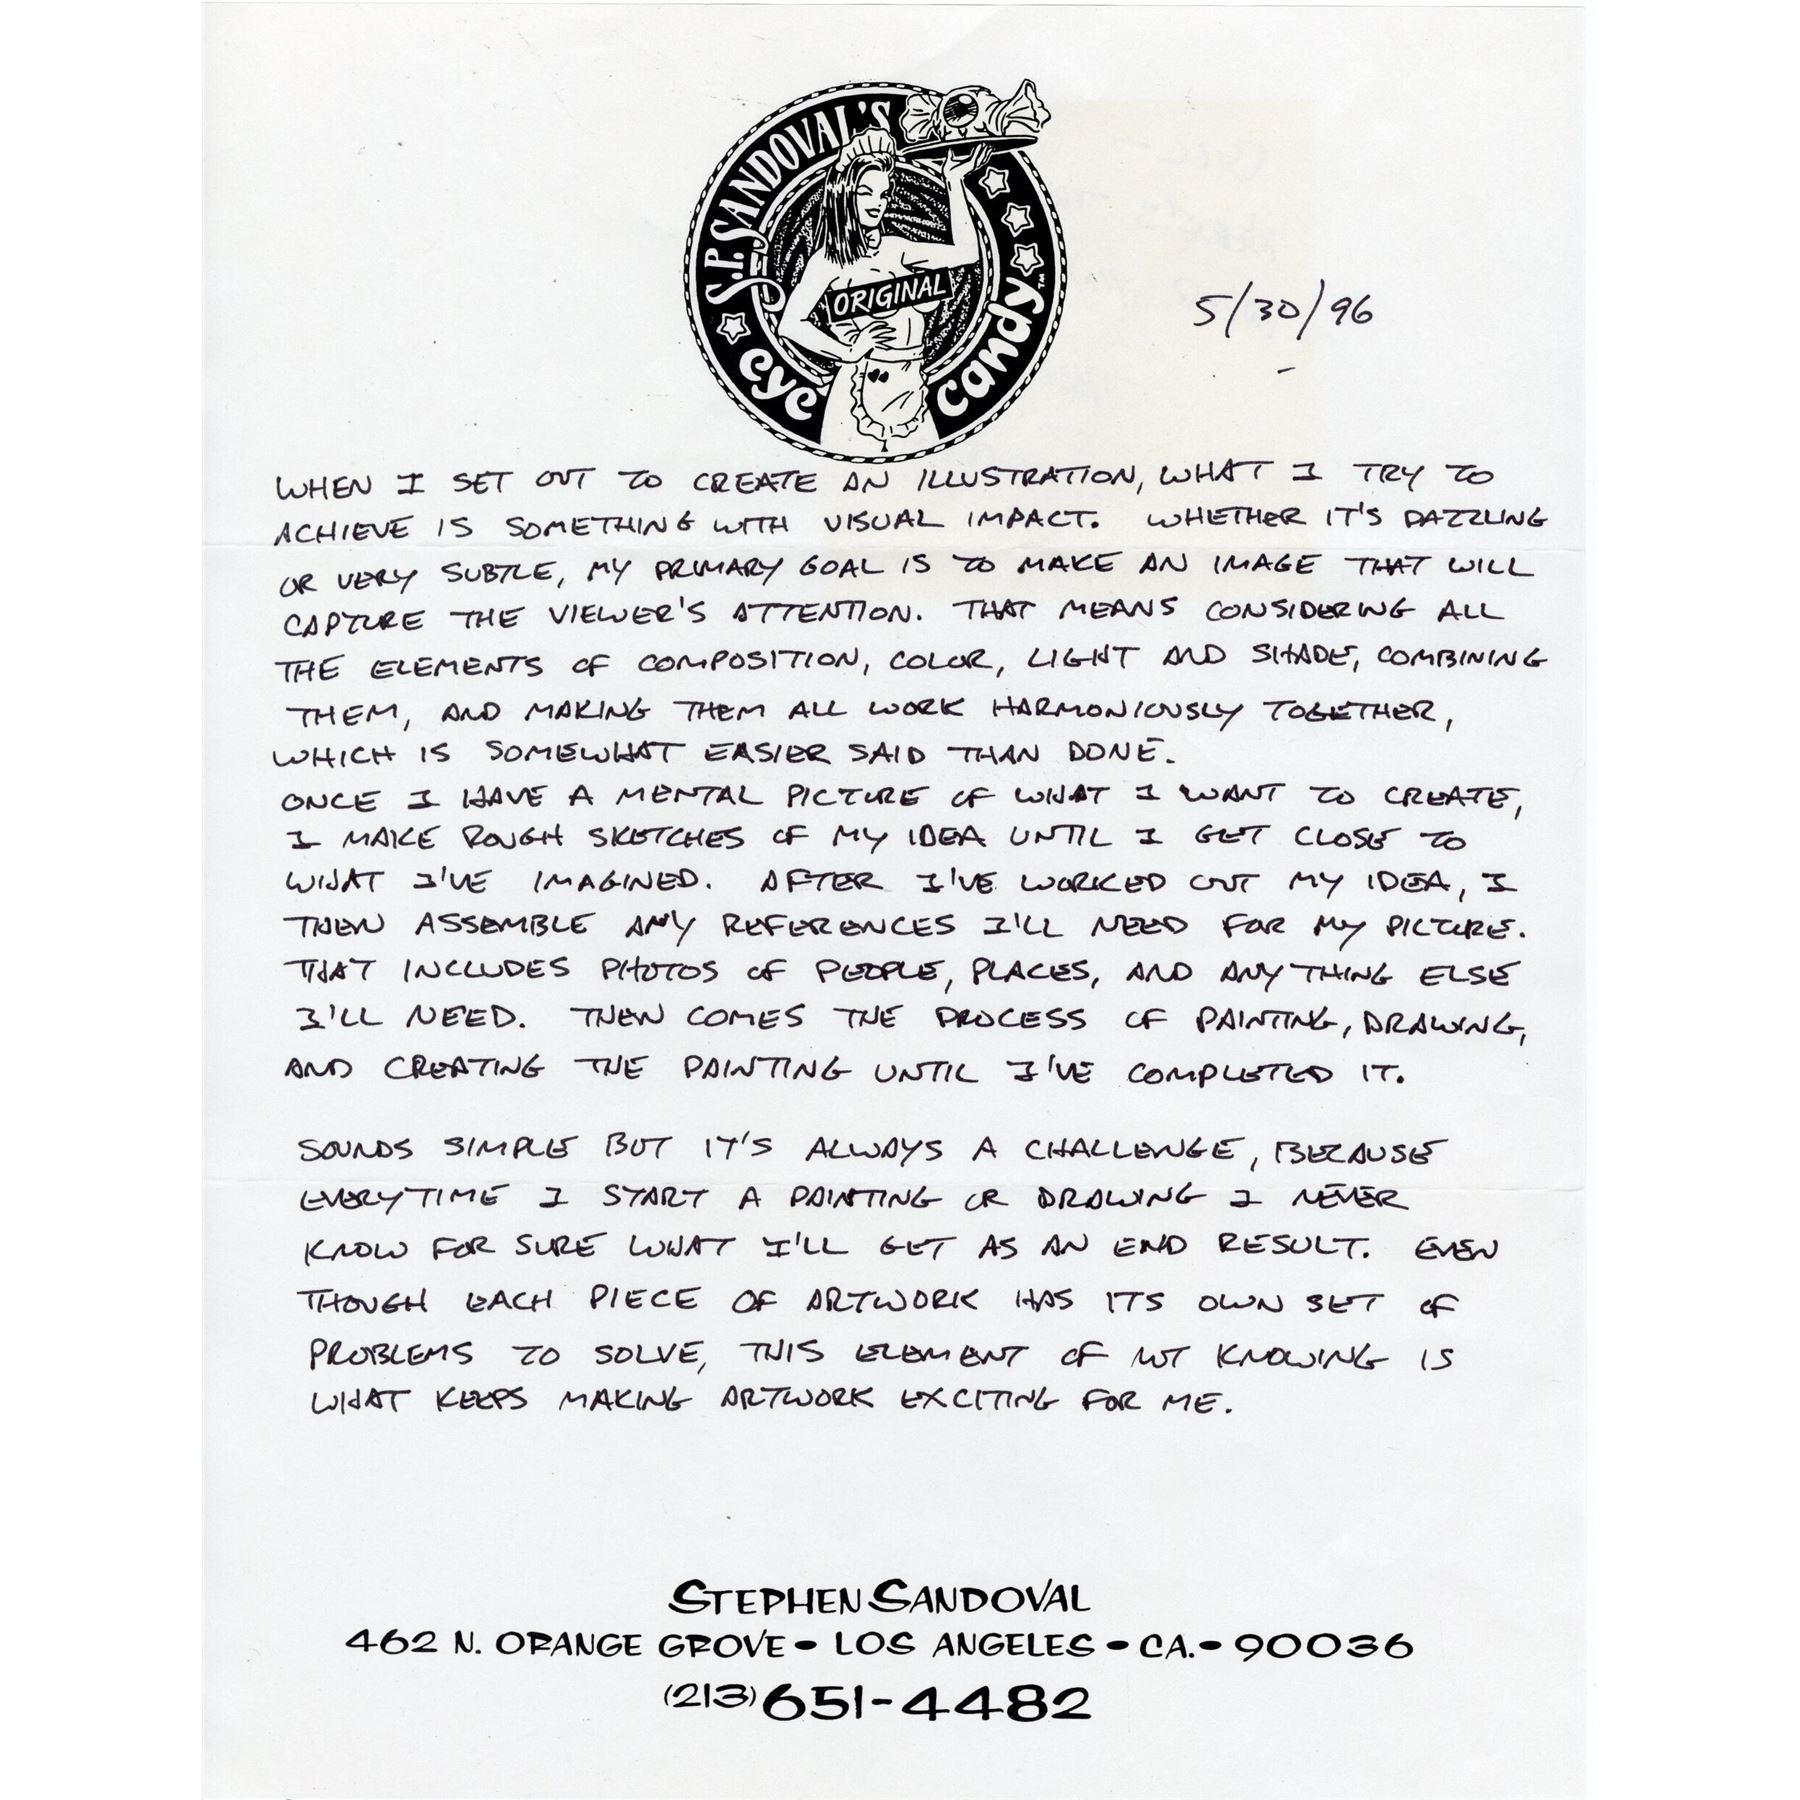 S.P. SANDOVAL'S
ORIGINAL
eye candy™
5/30/96
WHEN I SET OUT TO CREATE AN ILLUSTRATION, WHAT I TRY TO
ACHIEVE IS SOMETHING WITH VISUAL IMPACT. WHETHER IT'S DAZZLING
OR VERY SUBTLE, MY PRIMARY GOAL IS TO MAKE AN IMAGE THAT WILL
CAPTURE THE VIEWER'S ATTENTION. THAT MEANS CONSIDERING ALL
THE ELEMENTS OF COMPOSITION, COLOR, LIGHT AND SHADE, COMBINING
THEM, AND MAKING THEM ALL WORK HARMONIOUSLY TOGETHER,
WHICH IS SOMEWHAT EASIER SAID THAN DONE.
ONCE I HAVE A MENTAL PICTURE OF WHAT I WANT TO CREATE,
I MAKE ROUGH SKETCHES OF MY IDEA UNTIL I GET CLOSE TO
WHAT I'VE IMAGINED. AFTER I'VE WORKED OUT MY IDEA, I
THEN ASSEMBLE ANY REFERENCES I'LL NEED FOR MY PICTURE.
THAT INCLUDES PHOTOS OF PEOPLE, PLACES, AND ANYTHING ELSE
I'LL NEED. THEN COMES THE PROCESS OF PAINTING, DRAWING,
AND CREATING THE PAINTING UNTIL I'VE COMPLETED IT.
SOUNDS SIMPLE BUT IT'S ALWAYS A CHALLENGE, BECAUSE
EVERYTIME I START A PAINTING OR DRAWING I NEVER
KNOW FOR SURE WHAT I'LL GET AS AN END RESULT. EVEN
THOUGH EACH PIECE OF ARTWORK HAS ITS OWN SET OF
PROBLEMS TO SOLVE, THIS ELEMENT OF NOT KNOWING IS
WHAT KEEPS MAKING ARTWORK EXCITING FOR ME.
STEPHEN SANDOVAL
462 N. ORANGE GROVE • LOS ANGELES • CA. • 90036
(213) 651-4482